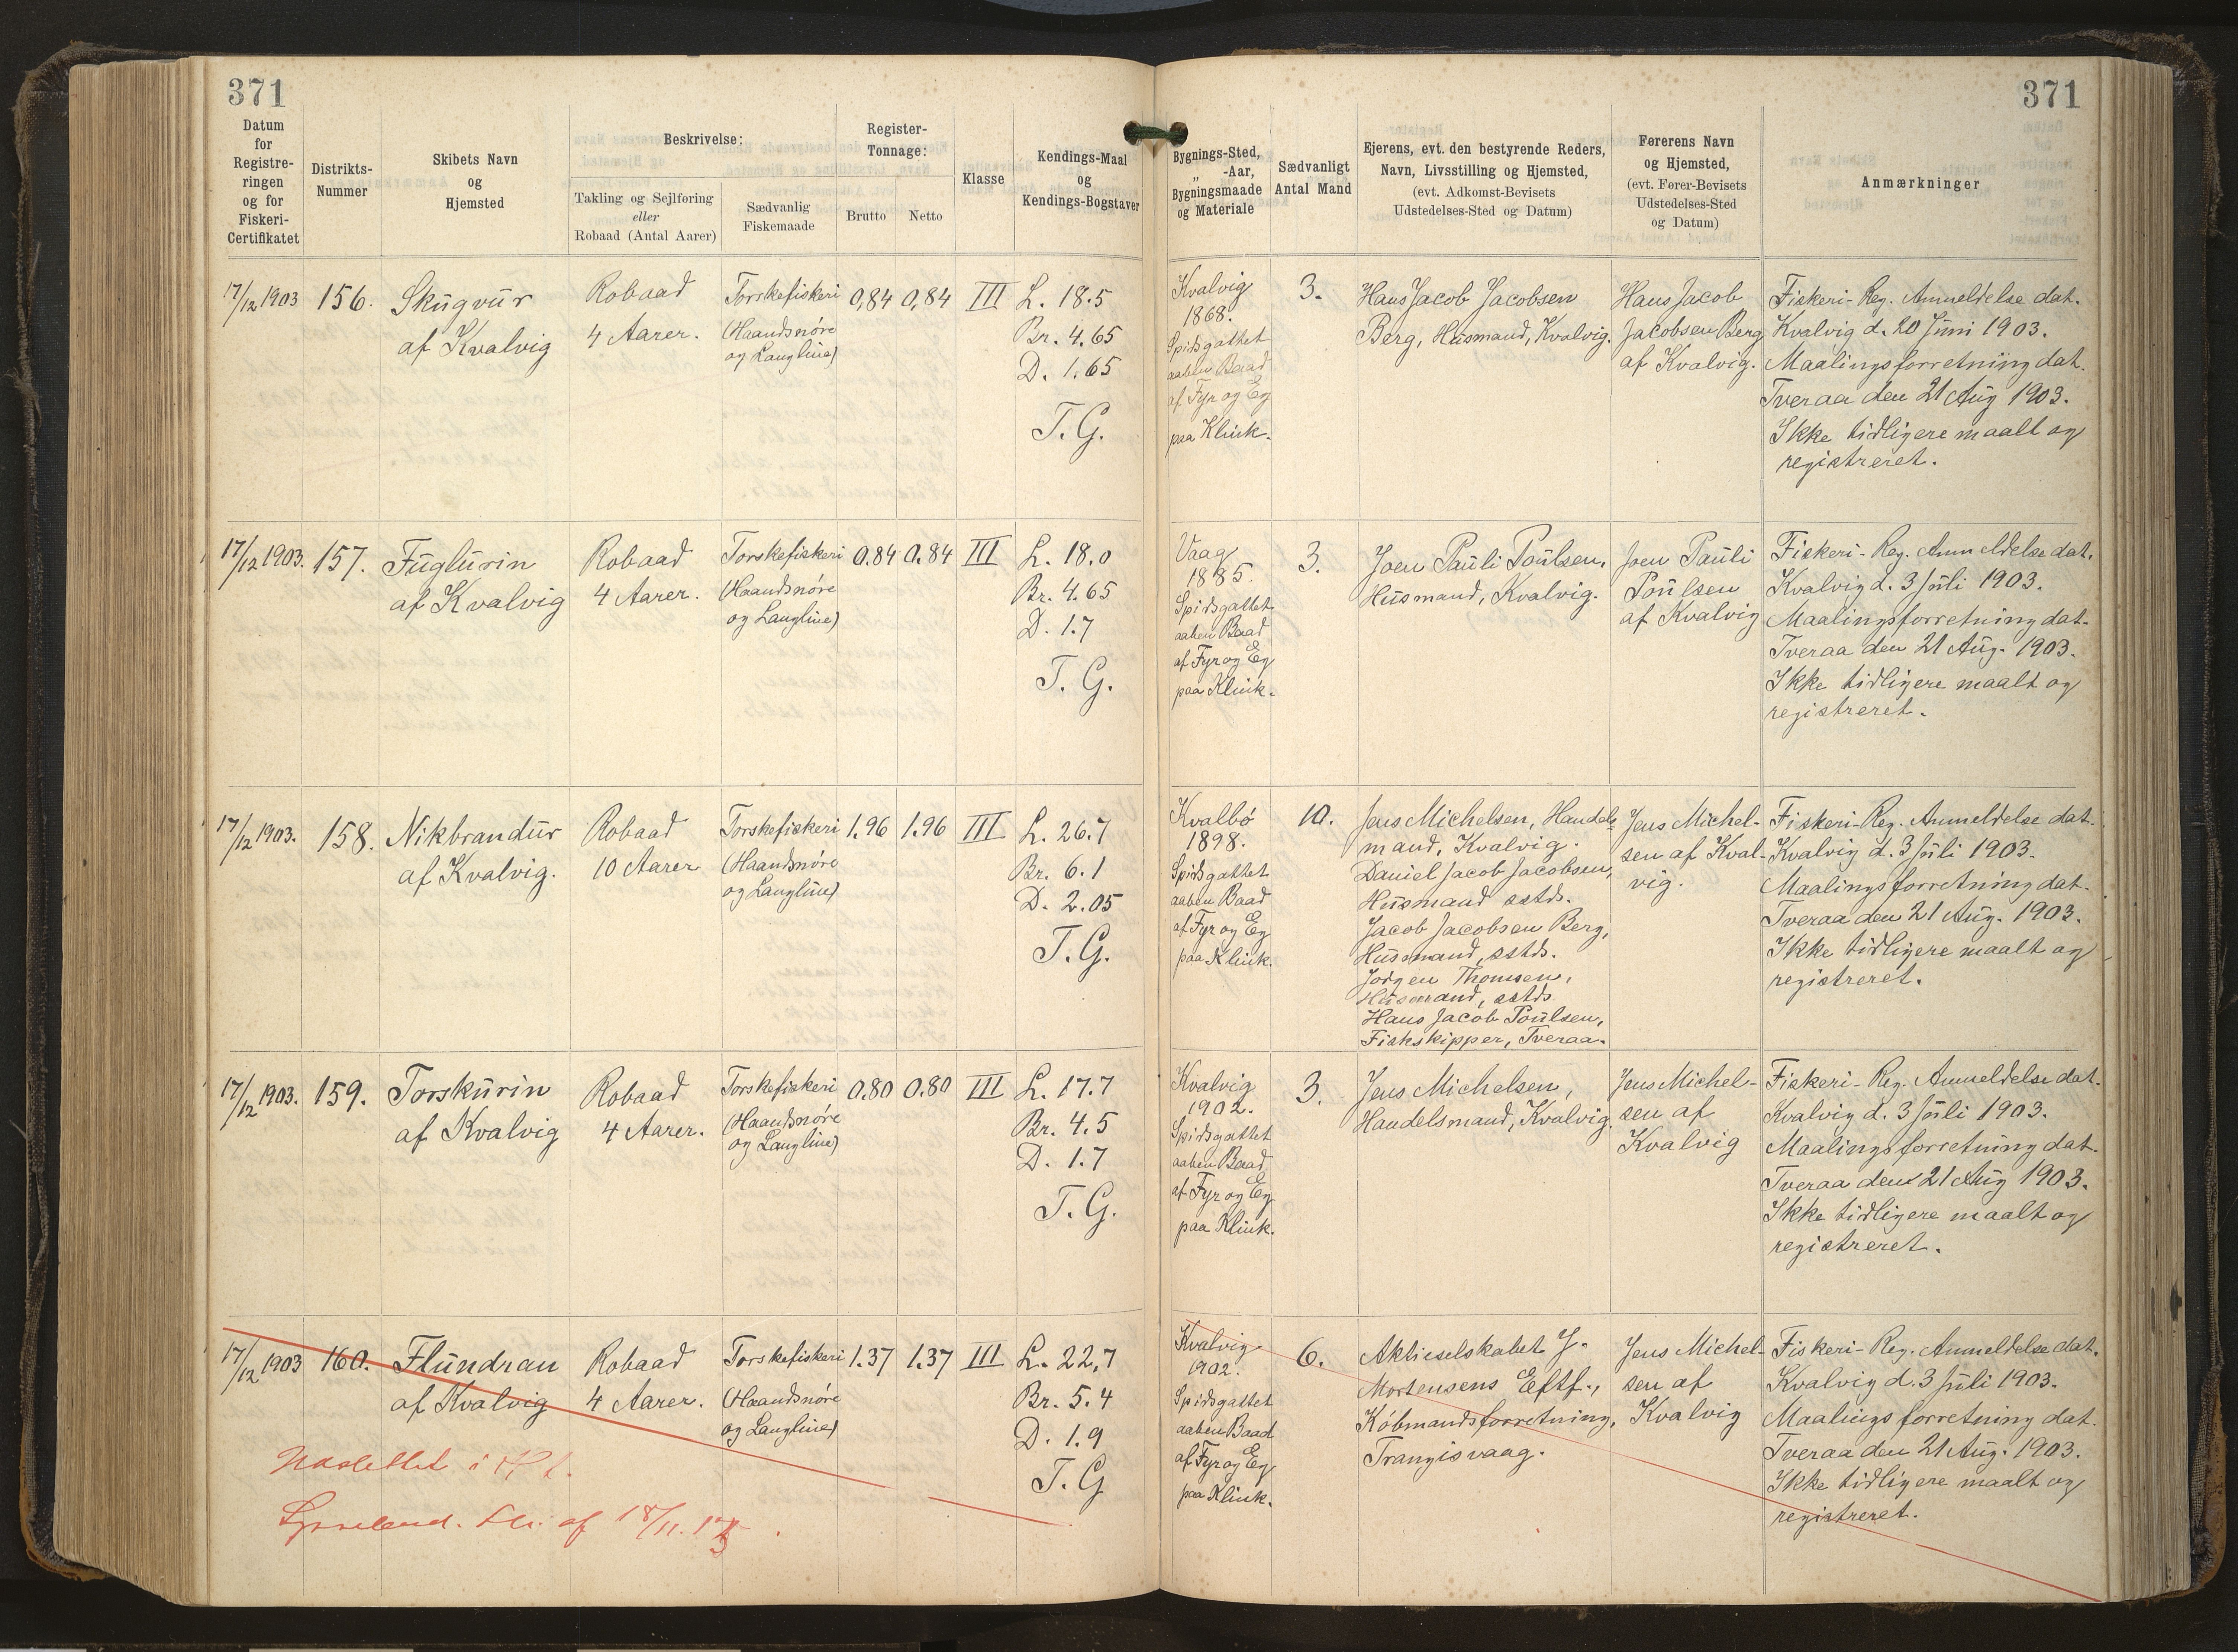 371
371
Datum
for
Registre-
ringen
og for
Fiskeri-
Certifikatet
Distrikts-
Nummer
Skibets Navn
og
Hjemsted
Beskrivelse:
Takling og Sejlføring
eller
Robaad (Antal Aarer)
Sædvanlig
Fiskemaade
Register-
Tonnage:
Brutto
Netto
Klasse
Kendings-Maal
og
Kendings-Bogstaver
Bygnings-Sted,
„ -Aar,
Bygningsmaade
og Materiale
Sædvanligt
Antal Mand
Ejerens, evt. den bestyrende Reders,
Navn, Livsstilling og Hjemsted,
(evt. Adkomst-Bevisets
Udstedelses-Sted og Datum)
Førerens Navn
og Hjemsted,
(evt. Fører-Bevisets
Udstedelses-Sted
og Datum)
Anmærkninger
17/12 1903
156.
Skúgvúr
af Kvalvig
Robaad
4 Aarer.
Torskefiskeri
(Haandsnøre
og Langline)
0,84
0,84
III
L. 18.5
Br. 4.65
D. 1.65
T. G.
Kvalvig
1868.
Spidsgattet
aaben Baad
af Fyr og Eg
paa Klink.
3.
Hans Jacob Jacobsen
Berg, Husmand, Kvalvig.
Hans Jacob
Jacobsen Berg
af Kvalvig.
Fiskeri-Reg. Anmeldelse dat.
Kvalvig d. 20 Juni 1903.
Maalingsforretning dat.
Tveraa den 21 Aug 1903.
Ikke tidligere maalt og
registreret.
17/12 1903.
157.
Fúglúrin
af Kvalvig
Robaad
4 Aarer.
Torskefiskeri
(Haandsnøre
og Langline)
0.84
0.84
III
L. 18.0
Br. 4.65
D. 1.7
T. G.
Vaag
1885.
Spidsgattet
aaben Baad
af Fyr og Eg
paa Klink.
3.
Joen Pauli Poulsen,
Husmand, Kvalvig.
Joen Pauli
Poulsen
af Kvalvig
Fiskeri-Reg. Anmeldelse dat.
Kvalvig d. 3 Juli 1903.
Maalingsforretning dat.
Tveraa den 21 Aug. 1903.
Ikke tidligere maalt og
registreret.
17/12 1903.
158.
Nikbrandúr
af Kvalvig.
Robaad
10 Aarer
Torskefiskeri
(Haandsnøre
og Langline)
1.96
1.96
III
L. 26.7
Br. 6.1
D. 2.05
T. G.
Kvalbø
1898.
Spidsgattet
aaben Baad
af Fyr og Eg
paa Klink.
10.
Jens Michelsen, Handels-
mand, Kvalvig.
Daniel Jacob Jacobsen,
Husmand sstds.
Jacob Jacobsen Berg,
Husmand, sstds.
Jørgen Thomsen,
Husmand, sstds
Hans Jacob Poulsen,
Fiskskipper, Tveraa.
Jens Michel-
sen af Kval-
vig.
Fiskeri-Reg. Anmeldelse dat.
Kvalvig d. 3 Juli 1903.
Maalingsforretning dat.
Tveraa den 21 Aug. 1903.
Ikke tidligere maalt og
registreret.
17/12 1903.
159.
Torskúrin
af Kvalvig
Robaad
4 Aarer.
Torskefiskeri
(Haandsnøre
og Langline)
0.80
0.80
III
L. 17.7
Br. 4.5
D. 1.7
T. G.
Kvalvig
1902.
Spidsgattet
aaben Baad
af Fyr og Eg
paa Klink.
3.
Jens Michelsen,
Handelsmand, Kvalvig.
Jens Michel-
sen af
Kvalvig
Fiskeri-Reg. Anmeldelse dat.
Kvalvig d. 3 Juli 1903.
Maalingsforretning dat.
Tveraa den 21 Aug 1903.
Ikke tidligere maalt og
registreret.
17/12 1903
160.
Flúndran
af Kvalvig
Robaad
4 Aarer.
Torskefiskeri
(Haandsnøre
og Langline)
1.37
1.37
III
L. 22,7
Br. 5.4
D. 1.9
T. G
Kvalvig
1902.
Spidsgattet
aaben Baad
af Fyr og Eg
paa Klink.
6.
Aktieselskabet J.
Mortensens Eftf.,
Købmandsforretning,
Trangisvaag.
Jens Michel-
sen af
Kvalvig
Fiskeri-Reg. Anmeldelse dat.
Kvalvig d. 3 Juli 1903.
Maalingsforretning dat.
Tveraa den 21 Aug. 1903.
Ikke tidligere maalt og
registreret.
i
af 18/11.